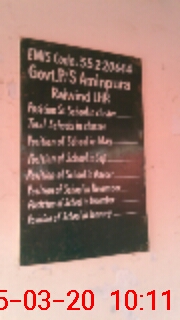 EMIS Code. 35220644
Govt. P/S Aminpura
Raiwind LHR
Position of School in cluster
Total Schools in cluster
Position of School in May
Position of School in Sep
Position of School in
Position of School in November
Position of School in
Position of School in January
5-03-20 10:11